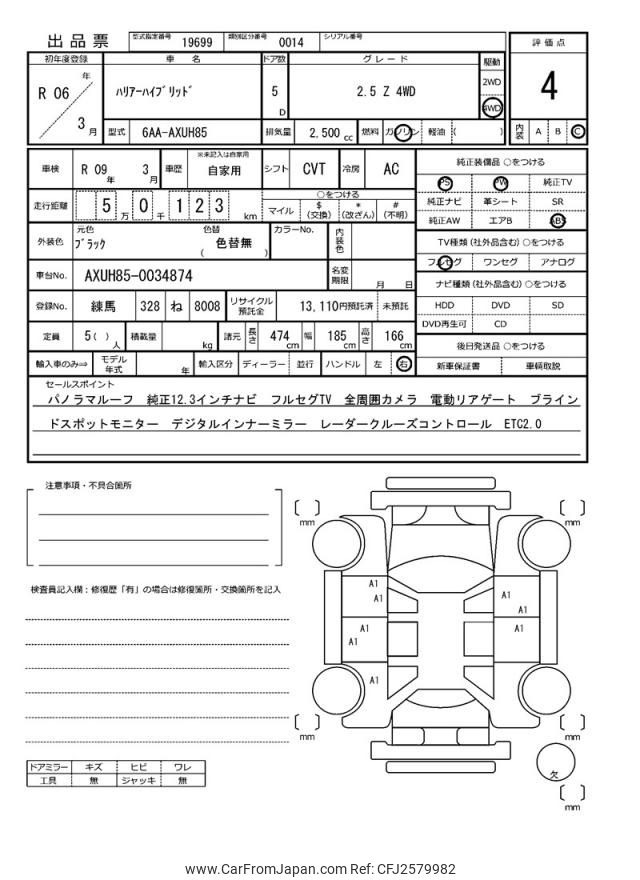 出品票 型式指定番号 19699 類別区分番号 0014 シリアル番号
評価点
4
内装 A B C
初年度登録 車名 ドア数 グレード 駆動
R 06 年 3 月 ﾊﾘｱｰﾊｲﾌﾞﾘｯﾄﾞ 5 D 2.5 Z 4WD 2WD 4WD
型式 6AA-AXUH85 排気量 2,500 cc 燃料 ガソリン 軽油 ( )
車検 R 09 年 3 月 車歴 ※未記入は自家用 自家用 シフト CVT 冷房 AC
走行距離 5 万 0 千 1 2 3 km ○をつける
マイル $(交換) *(改ざん) #(不明)
外装色 元色 ﾌﾞﾗｯｸ 色替 ( 色替無 ) カラーNo. 内装色
車台No. AXUH85-0034874 名変期限 月 日
登録No. 練馬 328 ね 8008 リサイクル預託金 13,110円預託済 未預託
定員 5( )人 積載量 kg 諸元 長さ 474cm 幅 185cm 高さ 166cm
輸入車のみ⇒ モデル年式 年 輸入区分 ディーラー 並行 ハンドル 左 右
純正装備品 ○をつける
PS PW 純正TV
純正ナビ 革シート SR
純正AW エアB ABS
TV種類 (社外品含む) ○をつける
フルセグ ワンセグ アナログ
ナビ種類 (社外品含む) ○をつける
HDD DVD SD
DVD再生可 CD
後日発送品 ○をつける
新車保証書 車輌取説
セールスポイント
パノラマルーフ 純正12.3インチナビ フルセグTV 全周囲カメラ 電動リアゲート ブライン
ドスポットモニター デジタルインナーミラー レーダークルーズコントロール ETC2.0
注意事項・不具合箇所
検査員記入欄：修復歴「有」の場合は修復箇所・交換箇所を記入
ドアミラー キズ ヒビ ワレ
工具 無 ジャッキ 無
[ ] mm
[ ] mm
A1
A1
A1
A1
A1
A1
A1
[ ] mm
[ ] mm
欠
[ ] mm
www.CarFromJapan.com Ref: CFJ2579982